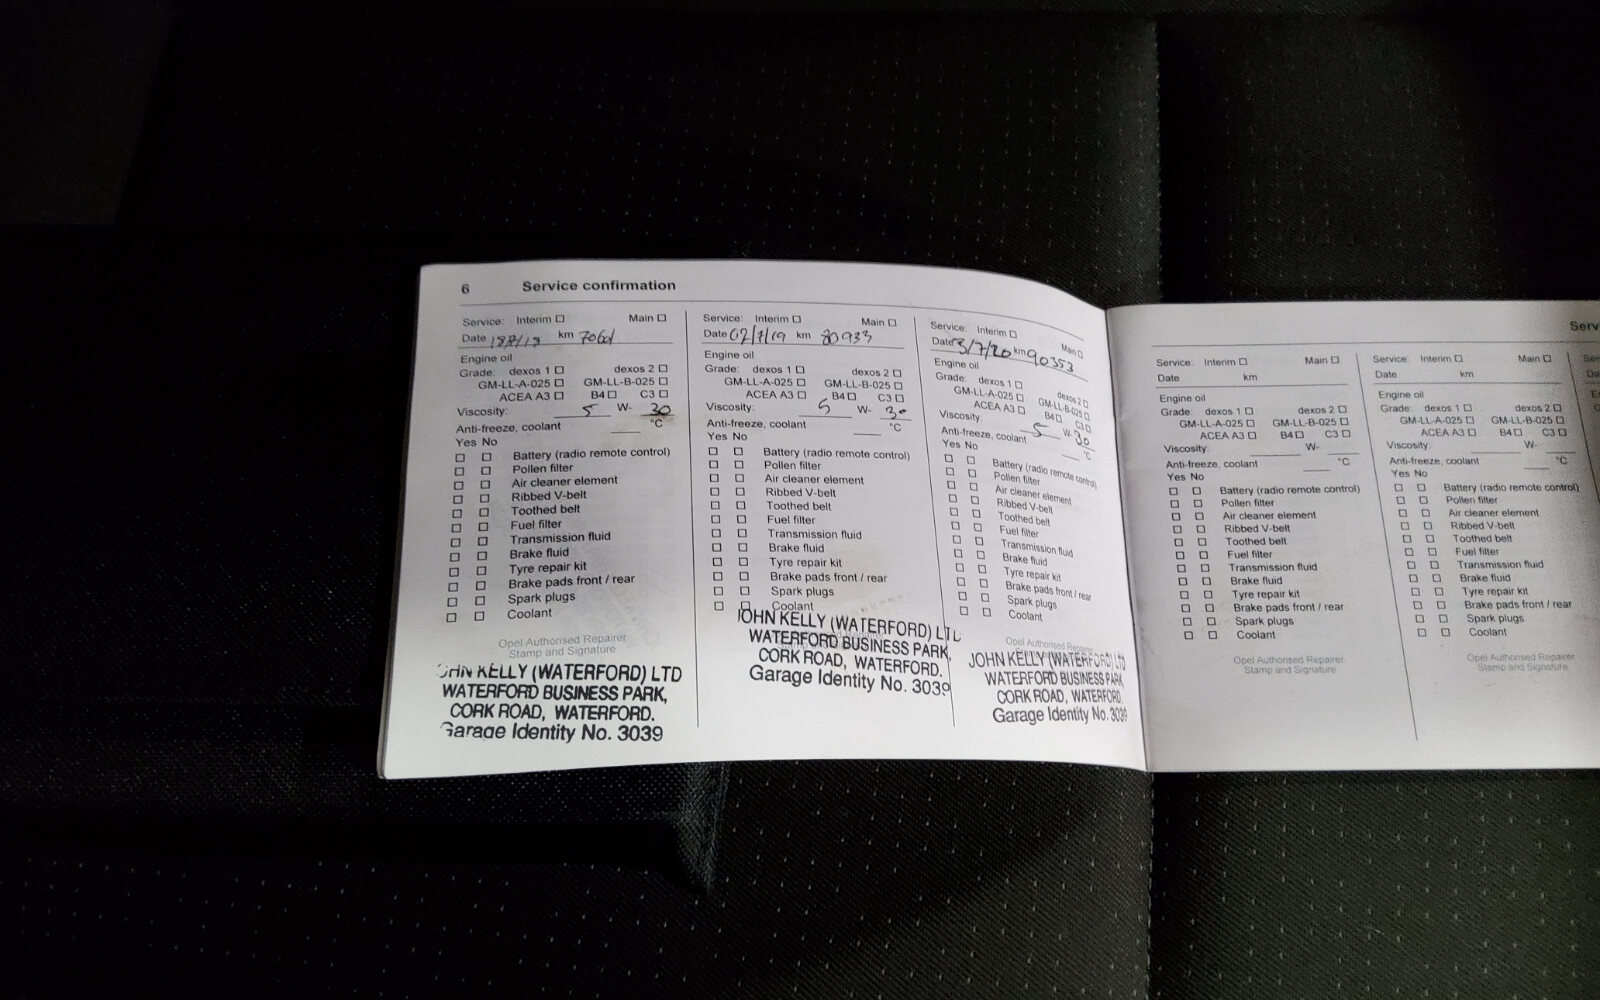 6 Service confirmation
Service: Interim ☐ Main ☐
Date km
Engine oil
Grade: dexos 1 ☐ dexos 2 ☐
GM-LL-A-025 ☐ GM-LL-B-025 ☐
ACEA A3 ☐ B4 ☐ C3 ☐
Viscosity: 5 W- 30
Anti-freeze, coolant °C
Yes No
☐ ☐ Battery (radio remote control)
☐ ☐ Pollen filter
☐ ☐ Air cleaner element
☐ ☐ Ribbed V-belt
☐ ☐ Toothed belt
☐ ☐ Fuel filter
☐ ☐ Transmission fluid
☐ ☐ Brake fluid
☐ ☐ Tyre repair kit
☐ ☐ Brake pads front / rear
☐ ☐ Spark plugs
☐ ☐ Coolant
Opel Authorised Repairer
Stamp and Signature
JOHN KELLY (WATERFORD) LTD
WATERFORD BUSINESS PARK,
CORK ROAD, WATERFORD.
Garage Identity No. 3039
Service: Interim ☐ Main ☐
Date 02/7/19 km 80933
Engine oil
Grade: dexos 1 ☐ dexos 2 ☐
GM-LL-A-025 ☐ GM-LL-B-025 ☐
ACEA A3 ☐ B4 ☐ C3 ☐
Viscosity: 5 W- 30
Anti-freeze, coolant °C
Yes No
☐ ☐ Battery (radio remote control)
☐ ☐ Pollen filter
☐ ☐ Air cleaner element
☐ ☐ Ribbed V-belt
☐ ☐ Toothed belt
☐ ☐ Fuel filter
☐ ☐ Transmission fluid
☐ ☐ Brake fluid
☐ ☐ Tyre repair kit
☐ ☐ Brake pads front / rear
☐ ☐ Spark plugs
☐ ☐ Coolant
JOHN KELLY (WATERFORD) LTD
WATERFORD BUSINESS PARK,
CORK ROAD, WATERFORD.
Garage Identity No. 3039
Service: Interim ☐ Main ☐
Date 3/7/20 km 90353
Engine oil
Grade: dexos 1 ☐ dexos 2 ☐
GM-LL-A-025 ☐ GM-LL-B-025 ☐
ACEA A3 ☐ B4 ☐ C3 ☐
Viscosity: 5 W- 30
Anti-freeze, coolant °C
Yes No
☐ ☐ Battery (radio remote control)
☐ ☐ Pollen filter
☐ ☐ Air cleaner element
☐ ☐ Ribbed V-belt
☐ ☐ Toothed belt
☐ ☐ Fuel filter
☐ ☐ Transmission fluid
☐ ☐ Brake fluid
☐ ☐ Tyre repair kit
☐ ☐ Brake pads front / rear
☐ ☐ Spark plugs
☐ ☐ Coolant
Opel Authorised Repairer
JOHN KELLY (WATERFORD) LTD
WATERFORD BUSINESS PARK,
CORK ROAD, WATERFORD.
Garage Identity No. 3039
Serv
Service: Interim ☐ Main ☐
Date km
Engine oil
Grade: dexos 1 ☐ dexos 2 ☐
GM-LL-A-025 ☐ GM-LL-B-025 ☐
ACEA A3 ☐ B4 ☐ C3 ☐
Viscosity: W-
Anti-freeze, coolant °C
Yes No
☐ ☐ Battery (radio remote control)
☐ ☐ Pollen filter
☐ ☐ Air cleaner element
☐ ☐ Ribbed V-belt
☐ ☐ Toothed belt
☐ ☐ Fuel filter
☐ ☐ Transmission fluid
☐ ☐ Brake fluid
☐ ☐ Tyre repair kit
☐ ☐ Brake pads front / rear
☐ ☐ Spark plugs
☐ ☐ Coolant
Opel Authorised Repairer
Stamp and Signature
Service: Interim ☐ Main ☐
Date km
Engine oil
Grade: dexos 1 ☐ dexos 2 ☐
GM-LL-A-025 ☐ GM-LL-B-025 ☐
ACEA A3 ☐ B4 ☐ C3 ☐
Viscosity: W-
Anti-freeze, coolant °C
Yes No
☐ ☐ Battery (radio remote control)
☐ ☐ Pollen filter
☐ ☐ Air cleaner element
☐ ☐ Ribbed V-belt
☐ ☐ Toothed belt
☐ ☐ Fuel filter
☐ ☐ Transmission fluid
☐ ☐ Brake fluid
☐ ☐ Tyre repair kit
☐ ☐ Brake pads front / rear
☐ ☐ Spark plugs
☐ ☐ Coolant
Opel Authorised Repairer
Stamp and Signature